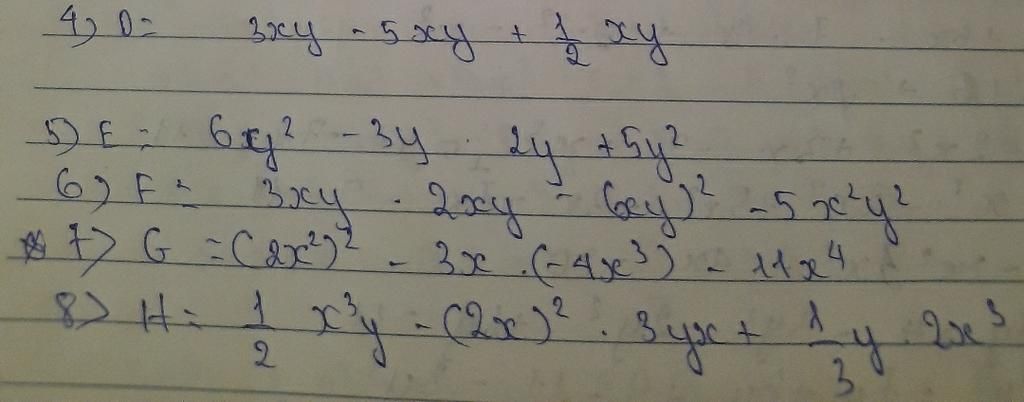 4) D = 3xy - 5xy + 1/2 xy
5) E = 6xy² - 3y . 2y + 5y²
6) F = 3xy . 2xy - (xy)² - 5x²y²
7) G = (2x²)² - 3x . (-4x³) - 11x⁴
8) H = 1/2 x³y - (2x)² . 3yx + 1/3 y . 2x³